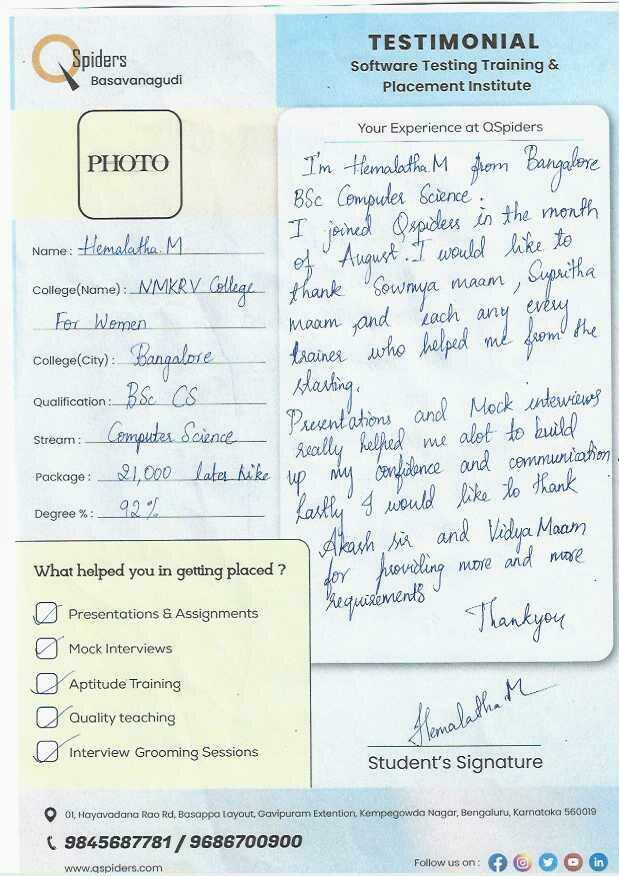 QSpiders
Basavanagudi
TESTIMONIAL
Software Testing Training &
Placement Institute
PHOTO
Name : Hemalatha.M
College(Name) : NMKRV College
For Women
College(City) : Bangalore
Qualification : BSc CS
Stream : Computer Science
Package : 21,000 later hike
Degree % : 92%
What helped you in getting placed ?
Presentations & Assignments
Mock Interviews
Aptitude Training
Quality teaching
Interview Grooming Sessions
Your Experience at QSpiders
I'm Hemalatha.M from Bangalore
BSc Computer Science.
I joined Qspiders in the month
of August. I would like to
thank Sowmya maam, Supritha
maam, and each any every
trainer who helped me from the
starting.
Presentations and Mock interviews
really helped me alot to build
up my confidence and communication.
Lastly I would like to thank
Akash sir and Vidya Maam
for providing more and more
requirements
Thankyou
Hemalatha.M
Student's Signature
01, Hayavadana Rao Rd, Basappa Layout, Gavipuram Extention, Kempegowda Nagar, Bengaluru, Karnataka 560019
9845687781 / 9686700900
www.qspiders.com
Follow us on :